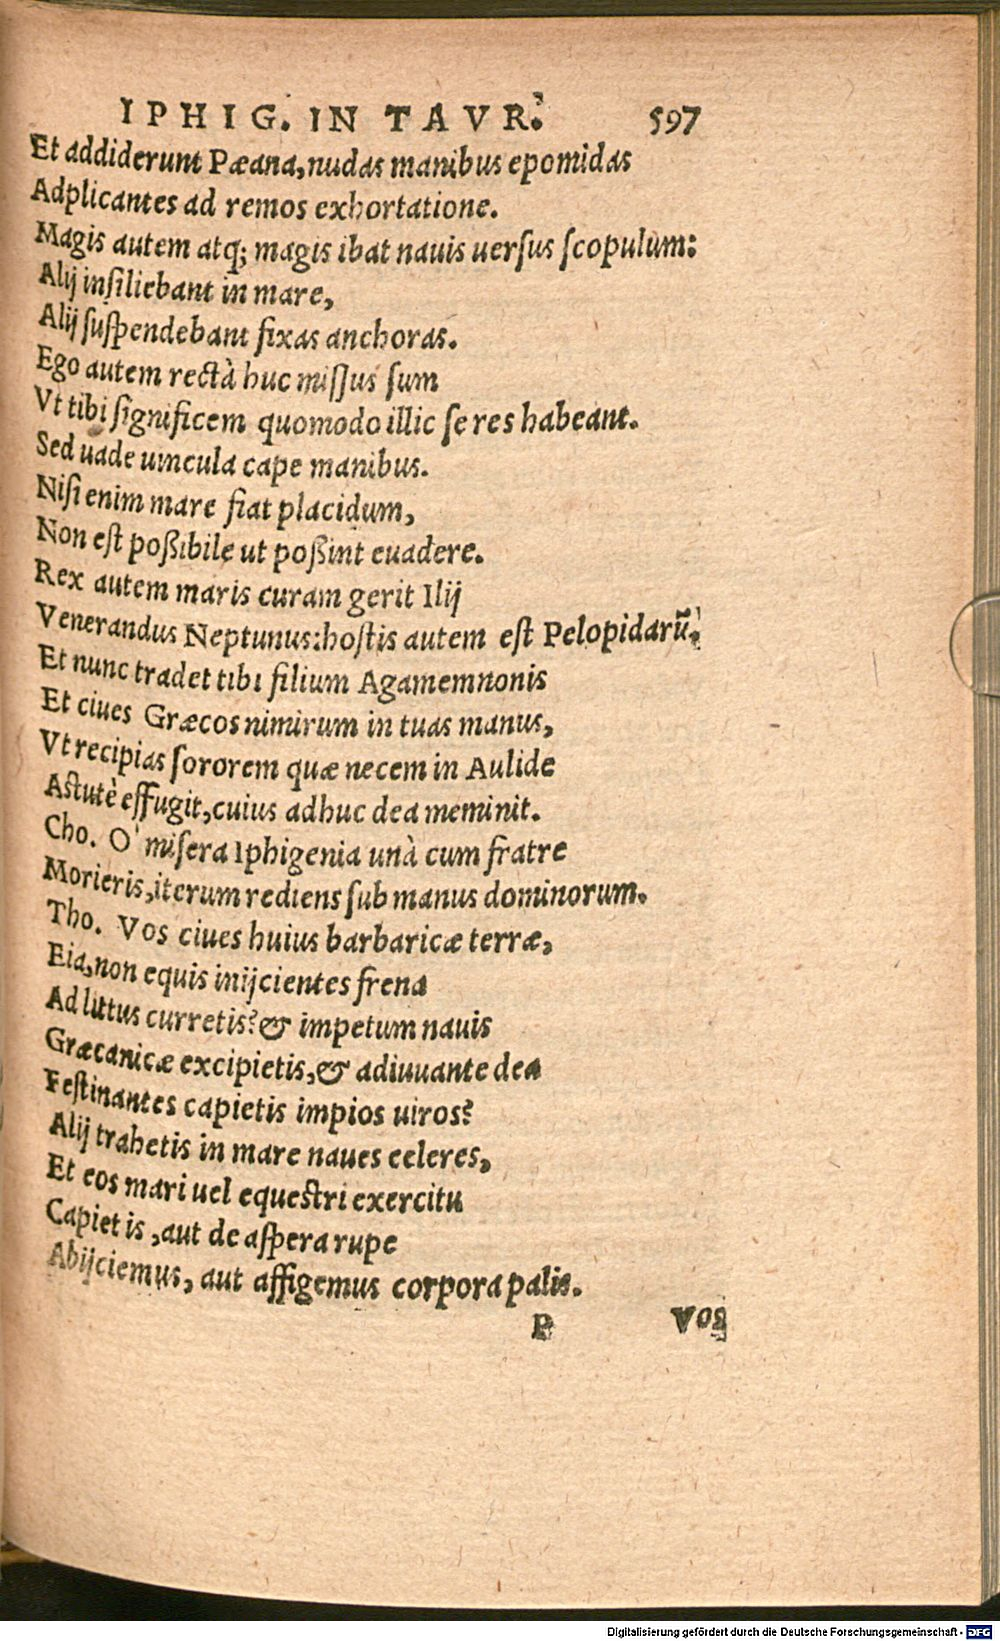 IPHIG. IN TAVR. 597
Et addiderunt Pæana, nudas manibus epomidas
Adplicantes ad remos exhortatione.
Magis autem atq; magis ibat nauis uerſus ſcopulum:
Alij inſiliebant in mare,
Alij ſuſpendebant fixas anchoras.
Ego autem rectà huc miſſus ſum
Vt tibi ſignificem quomodo illic ſe res habeant.
Sed uade uincula cape manibus.
Niſi enim mare fiat placidum,
Non eſt poßibile ut poßint euadere.
Rex autem maris curam gerit Ilij
Venerandus Neptunus: hoſtis autem eſt Pelopidarũ,
Et nunc tradet tibi filium Agamemnonis
Et ciues Græcos nimirum in tuas manus,
Vt recipias ſororem quæ necem in Aulide
Aſtutè effugit, cuius adhuc dea meminit.
Cho. O' miſera Iphigenia unà cum fratre
Morieris, iterum rediens ſub manus dominorum.
Tho. Vos ciues huius barbaricæ terræ,
Eia, non equis inijcientes frena
Ad littus curretis? & impetum nauis
Græcanicæ excipietis, & adiuuante dea
Feſtinantes capietis impios uiros?
Alij trahetis in mare naues celeres,
Et eos mari uel equeſtri exercitu
Capietis, aut de aſpera rupe
Abijciemus, aut affigemus corpora palis.
P Vos
Digitalisierung gefördert durch die Deutsche Forschungsgemeinschaft - DFG